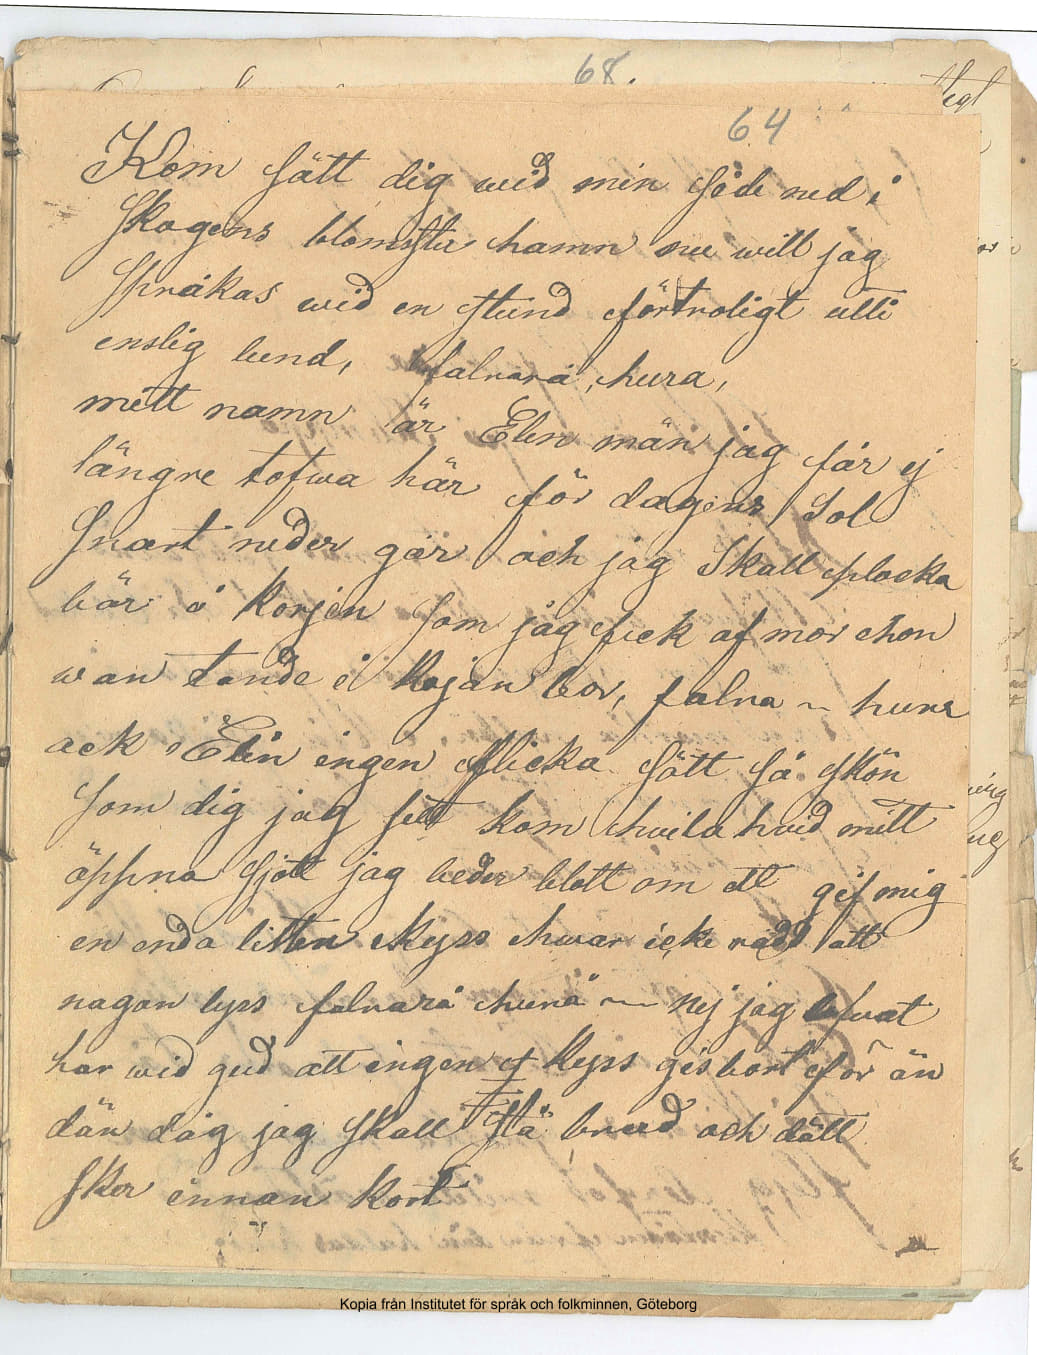 68.
64
Kom sätt dig wid min side ned i
skogens blomster hamn nu will jag
språkas wid en stund förtroligt utti
enslig lund, falrara, hura,
mitt namn är Elin män jag får ej
längre tofwa här för dagens Sol
snart neder går och jag Skall plocka
bär i korjen som jag fick af mor hon
wan tande i kojan bor, falra ~ hura
ack Elin ingen flicka sått så skön
som dig jag sett kom hwila hwid mitt
öppna sjöl jag beder blott om ett gif mig
en enda litten kyss hwar icke rädd att
nagon lyss falrara hurä ~ nej jag lofwat
har wid gud att ingen kyss gis bort för än
dän dag jag skall stå brud och dätt
sker innan kort
Kopia från Institutet för språk och folkminnen, Göteborg